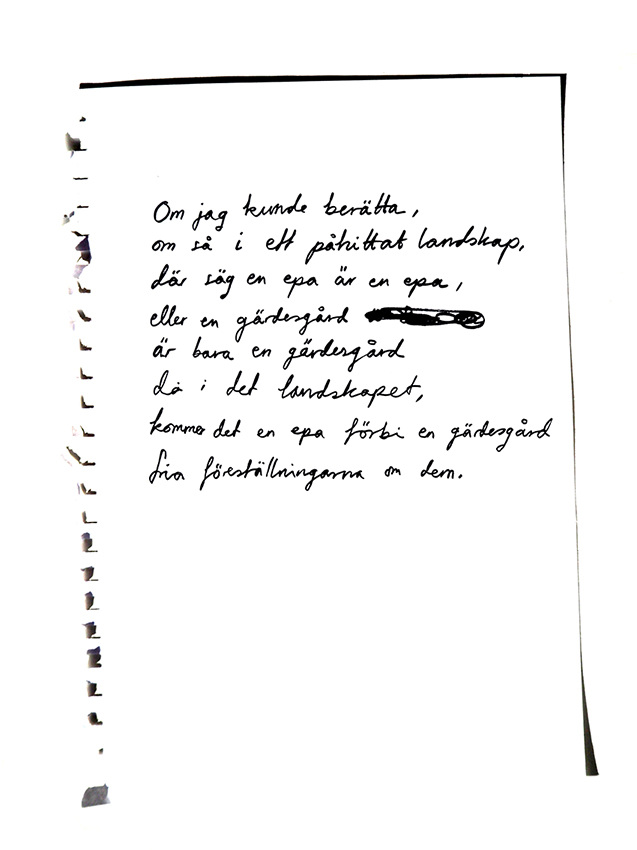 Om jag kunde berätta,
om så i ett påhittat landskap,
där säg en epa är en epa,
eller en gärdesgård
är bara en gärdesgård
då i det landskapet,
kommer det en epa förbi en gärdesgård
fria föreställningarna om dem.